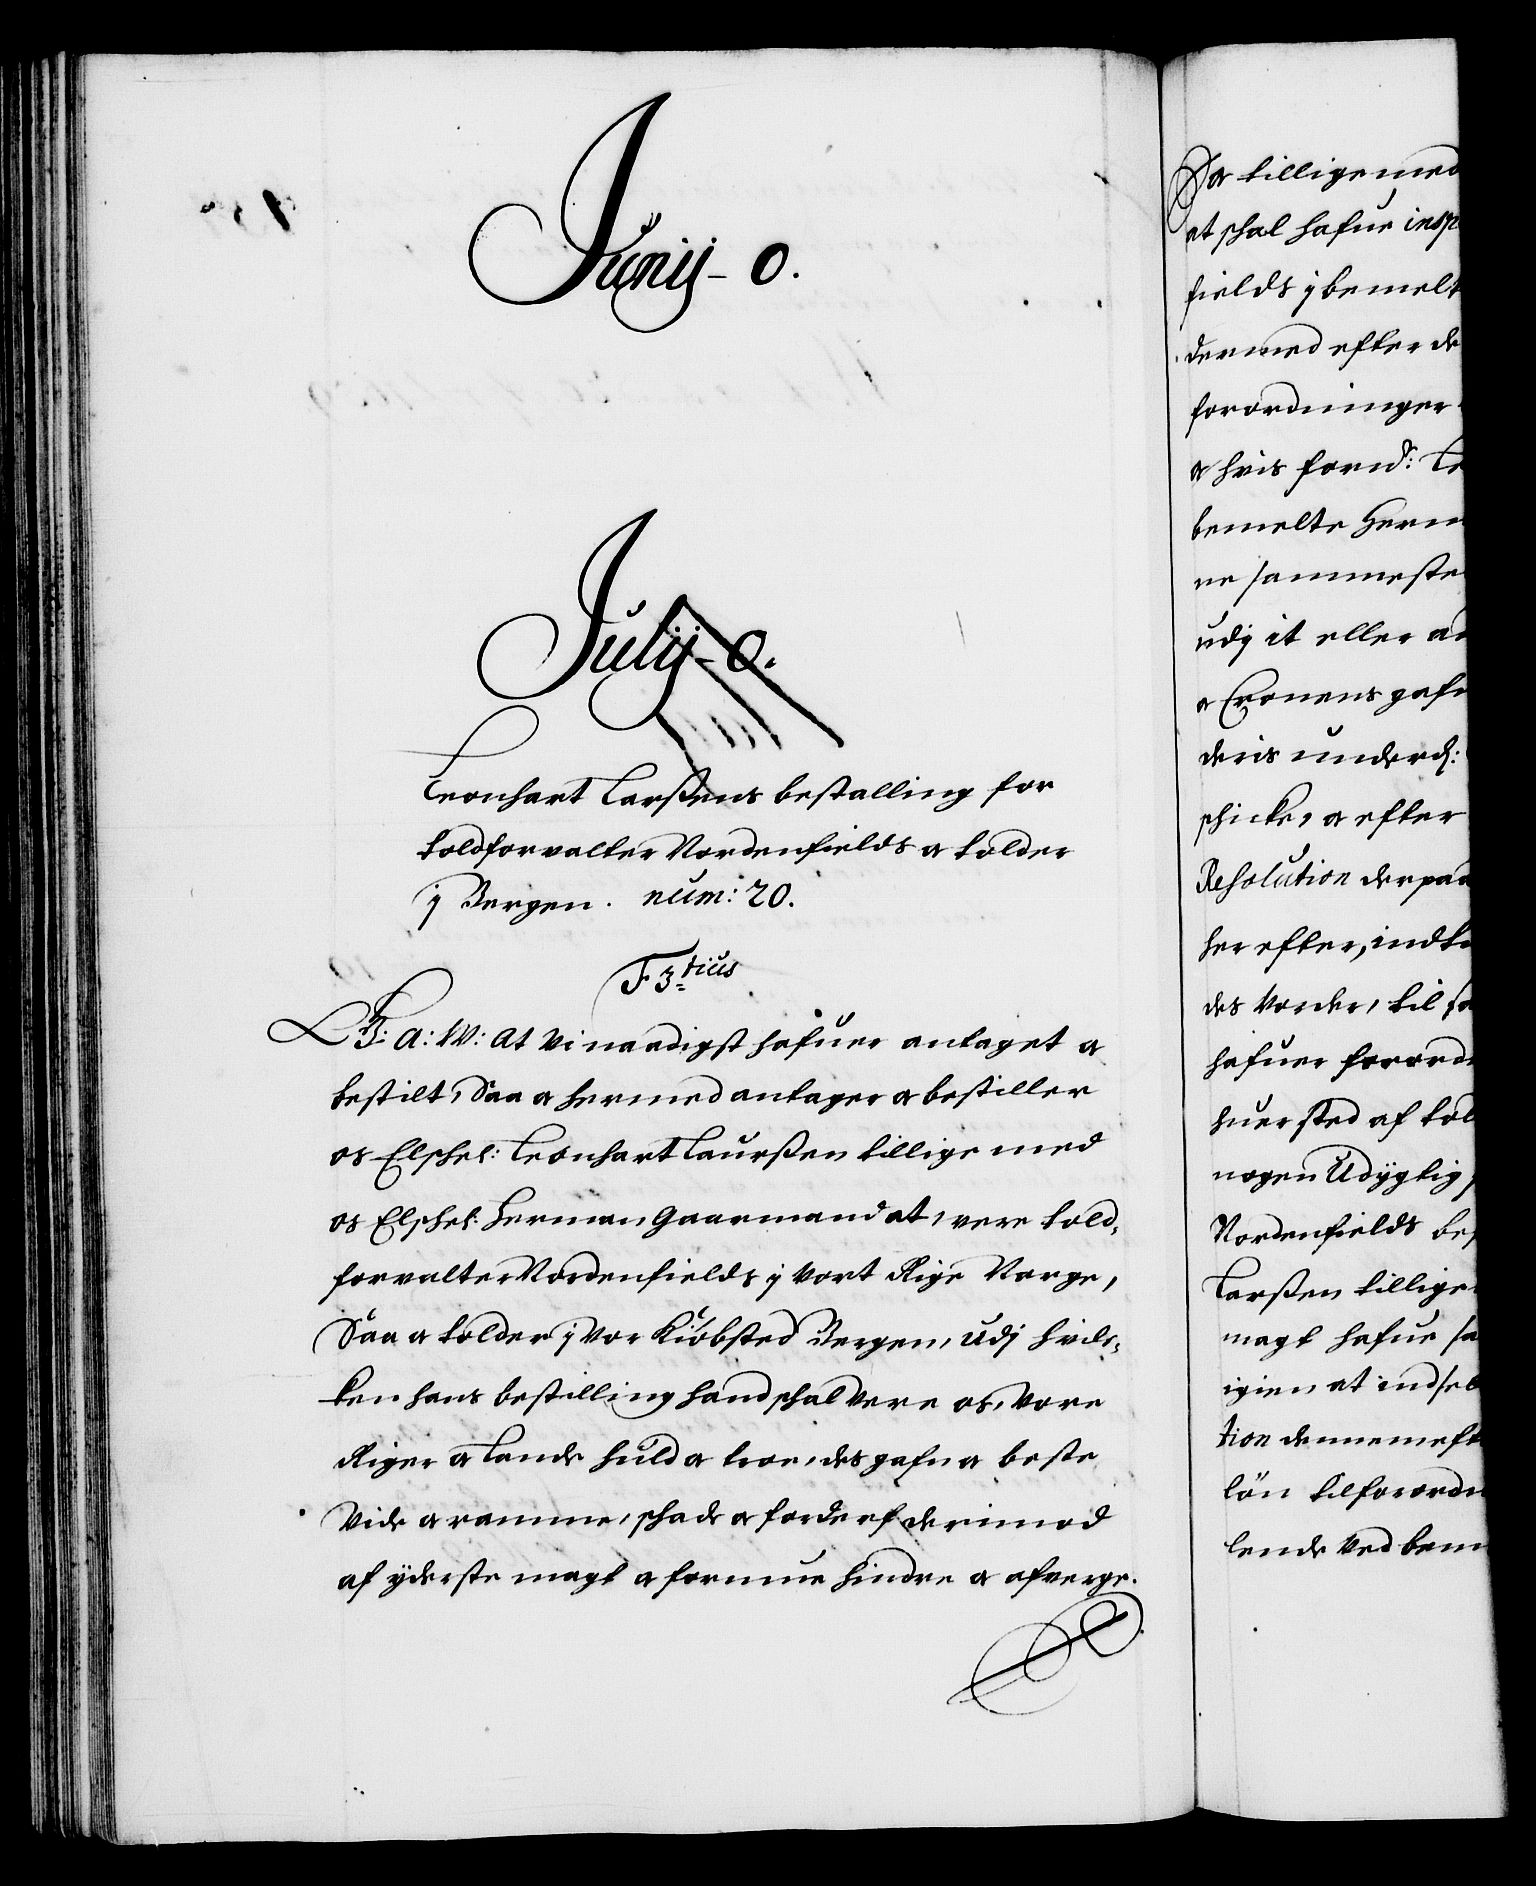 Junij - 0.
Julij - 0.
Leonhart Larßens bestalling for
toldforvalter Nordenfields oc tolder
j Bergen. num: 20.
F 3tius
G: A: W: At vi naadigst hafuer antaget oc
bestilt, Saa oc hermed antager oc bestiller
os Elschel: Leonhart Laurßen tillige med
os Elschel: Herman Gaarmand at, vere told,
forvalter Nordenfields j vort Rige Norge,
Saa oc tolder j vor Kiøbsted Bergen, Udj hvils,
ken hans bestilling hand schal vere os, vore
Riger oc Lande huld oc troe, des gafn oc beste
vide oc ramme, schade oc forderf derimod
af yderste magt oc formue hindre oc afverge.
Oc tillige med
at schal hafue insp
fields j bemelt
dermed efter de
forordninger
oc hvis fornd: Le
bemelte Herm
ne sammeste
udj it eller an
oc Cronens gafn
deris underd:
schicke, oc efter
Resolution derpaa
her efter, indk
des vorder, til sa
hafuer forord
huer sted af tol
nogen Udygtig
Nordenfields bes
Larßen tillige
magt hafue sa
igien at indset
tion dennem eft
løn tilforordn
lende ved bem